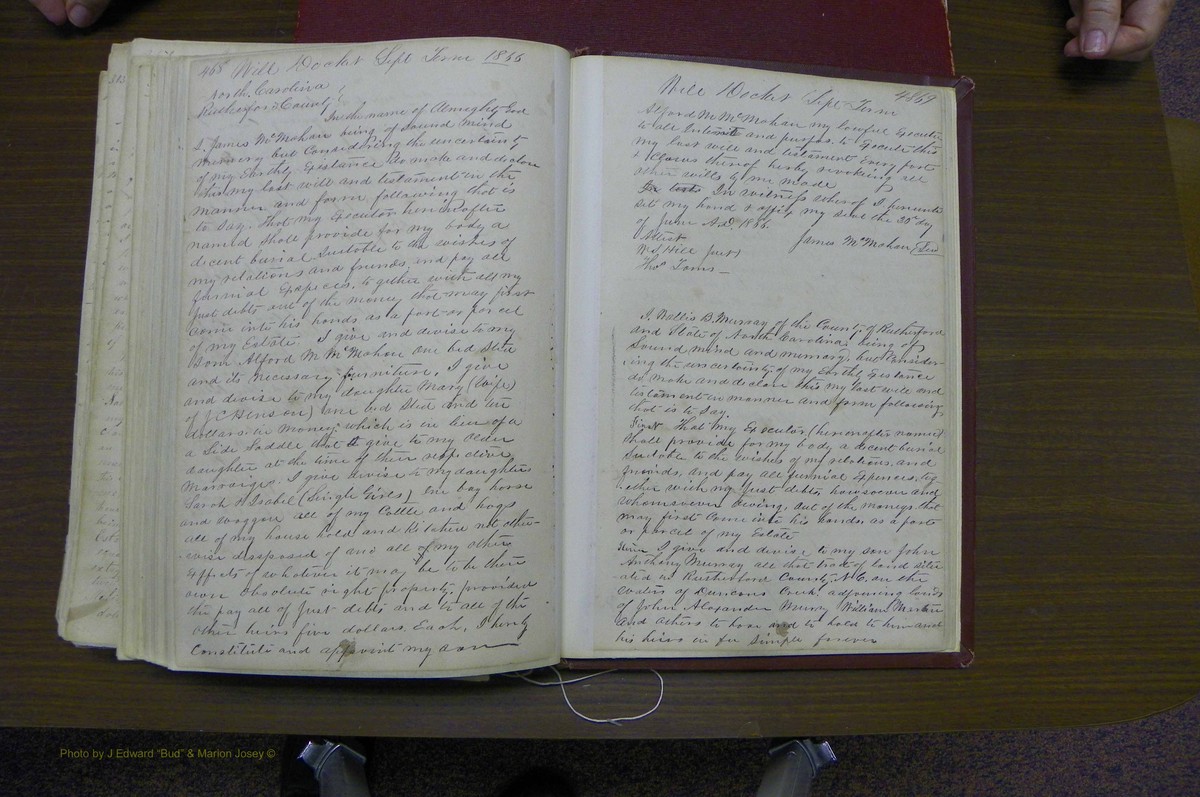 468 Will Docket Sept Term 1866
North Carolina
Rutherford County
In the name of Almighty God
I, James McMahan being of sound mind
memory but Considering the uncertainty
of my Earthly Existance do make and declare
this my last will and testament in the
manner and form following that is
to say. That my Executor hereinafter
named shall provide for my body a
decent burial Suitable to the wishes of
my relations and friends, and pay all
furnial Expeces, to gether with all my
just debts out of the money that may first
Come into his hands as a part or parcel
of my Estate. I give and devise to my
son Alford M McMahan one bed sted
and its necessary furniture, I give
and devise to my daughter Mary (Wife
of J C Henson) one bed sted and ten
dollars in money which is in lieu of a
a Side Saddle that I give to my older
daughter at the time of their respective
Marraiges. I give devise to my daughters
Sarah & Isabel (Single Girls) One bay horse
and waggon all of my Cattle and hogs
all of my house hold and Kitchen not other-
wise dispposed of and all of my other
Effects of whatever it may be to be their
own absolute right property, provided
the pay all of just debts and to all of the
other heirs five dollars. Each, I herely
Constitute and appoint my son
Will Docket Sept Term 469
Alford M McMahan my lawful Executor
to all intents and purposes to Execute this
my last will and testament Every part
& Clause thereof hereby revoking all
other wills by me made
In witness whereof I
set my hand & affix my seal the 25 day
of June A.D. 1866.
James McMahan Seal
Attest
W. S. Hill Jurt
Thos Toms
I, Wallis D. Murray of the County of Rutherford
and State of North Carolina, being of
Sound mind and memory, but Consider-
ing the uncertainty of my Earthly Existance
do make and declare this my last will and
testament in manner and form following,
that is to say.
First That my Executor (hereinafter named)
Shall provide for my body a decent burial
Suitable to the wishes of my relations, and
friends, and pay all furnial Expences, tog
ether with my Just debts, howsoever and
whomsoever Owing, out of the moneys that
may first Come into his hands as a part
or parcel of my Estate
Item I give and devise to my son John
Anthony Murray all that tract of land situ-
ated in Rutherford County N.C. on the
waters of Duncans Creek adjoining lands
of John Alexander Murry William Martin
and others to have and to hold to him and
his heirs in fee Simple forever
Photo by J Edward "Bud" & Marion Josey ©